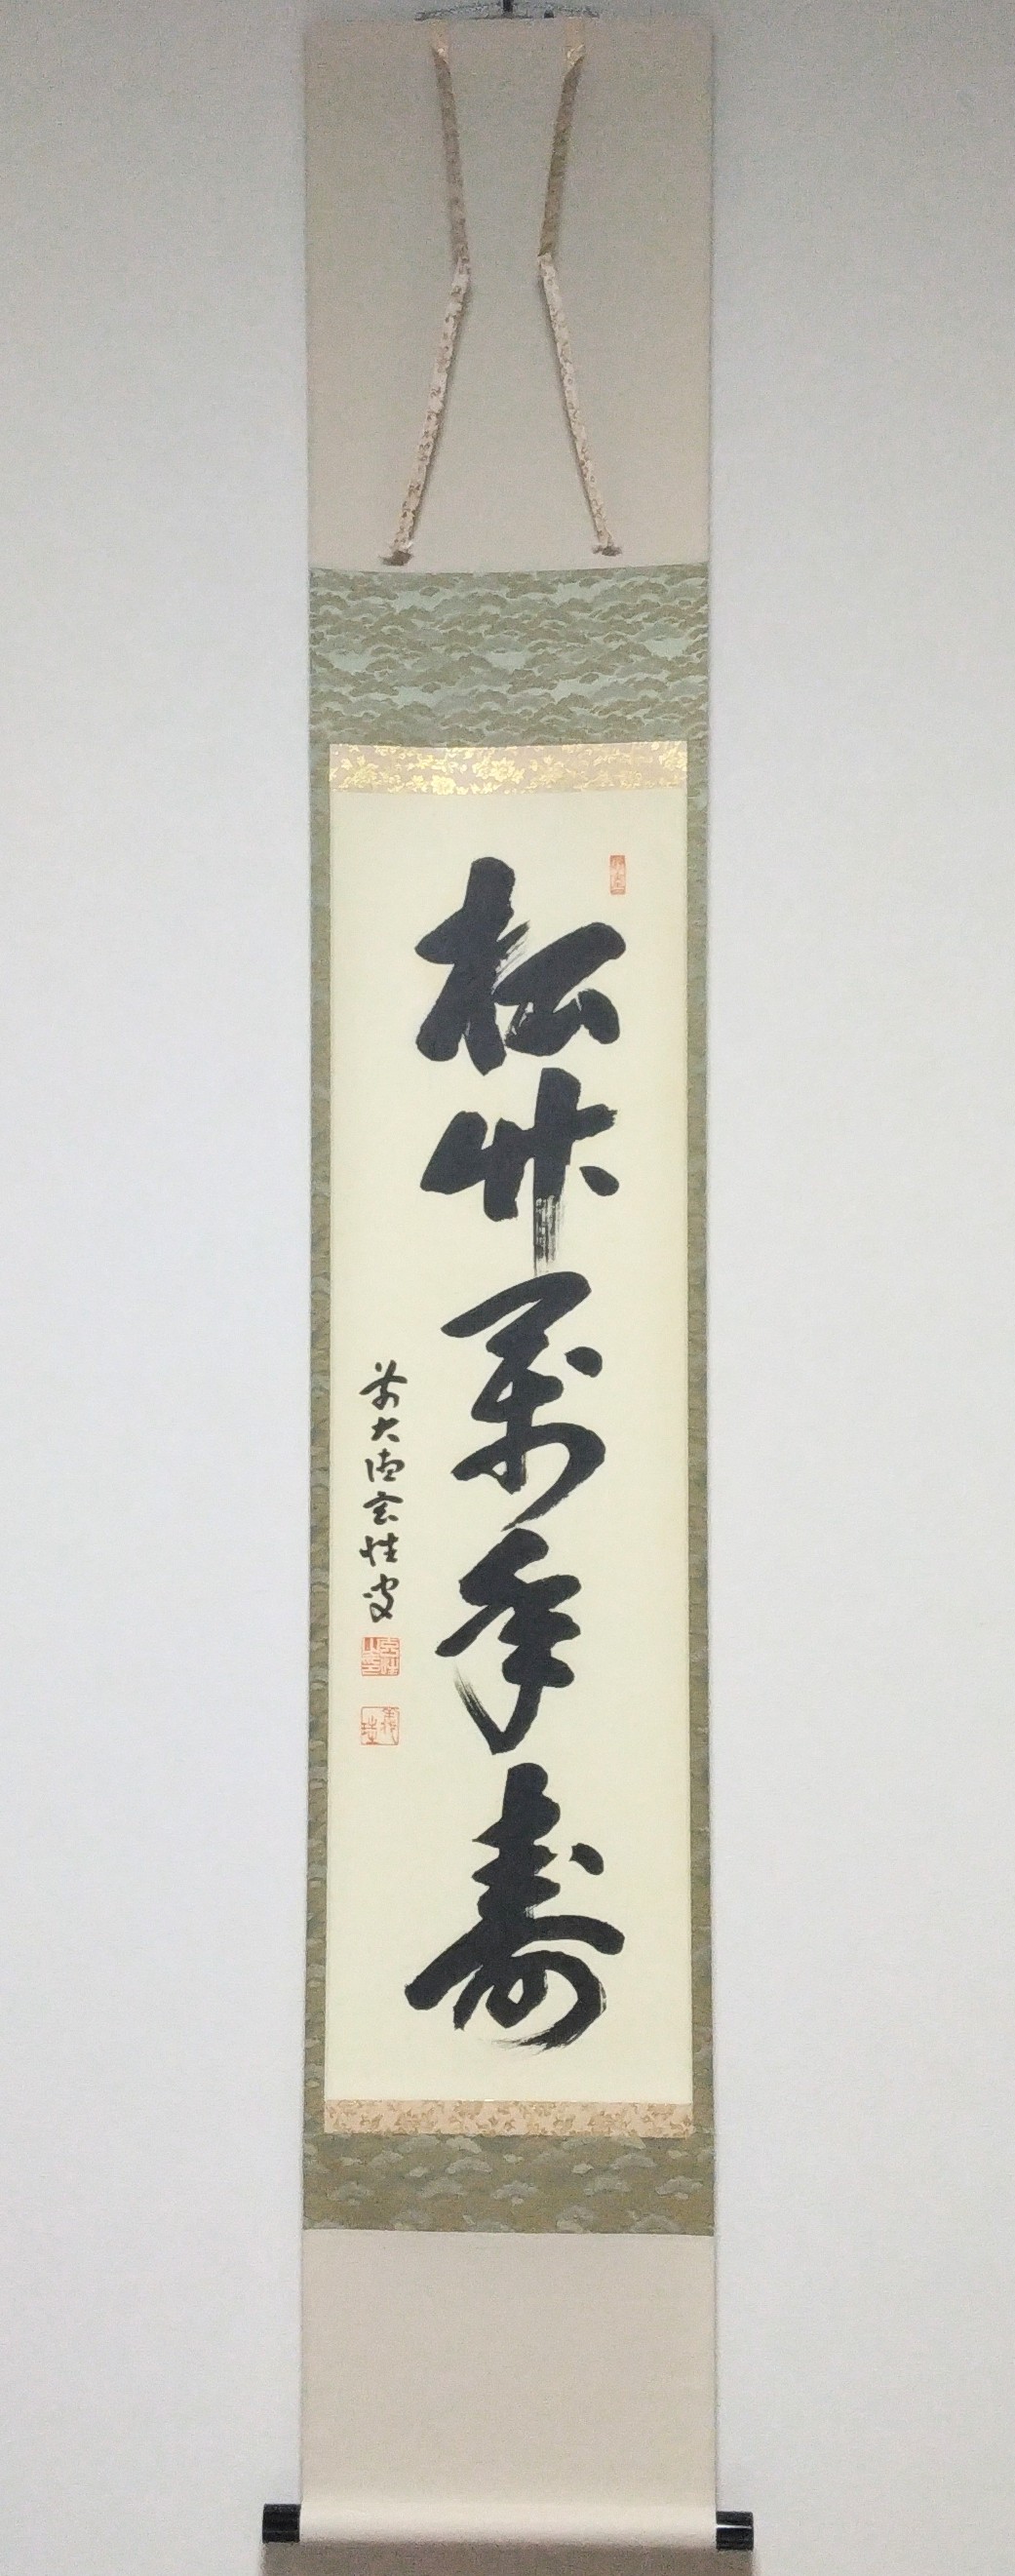 松竹萬年寿
前大徳玄性叟